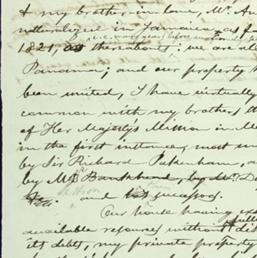 & my brother in law, Mr. An
naturalized in Jamaica as f
1821, or thereabout; we are all
Panama; and our property h
been united, I have virtually
common with my brothers, th
of Her Majesty's Mission in Me
in the first instance, most un
by Sir Richard Pakenham, a
by Mr. Bankhead, by Mr. D
and
Our house having
available resources without dis
its debts, my private property